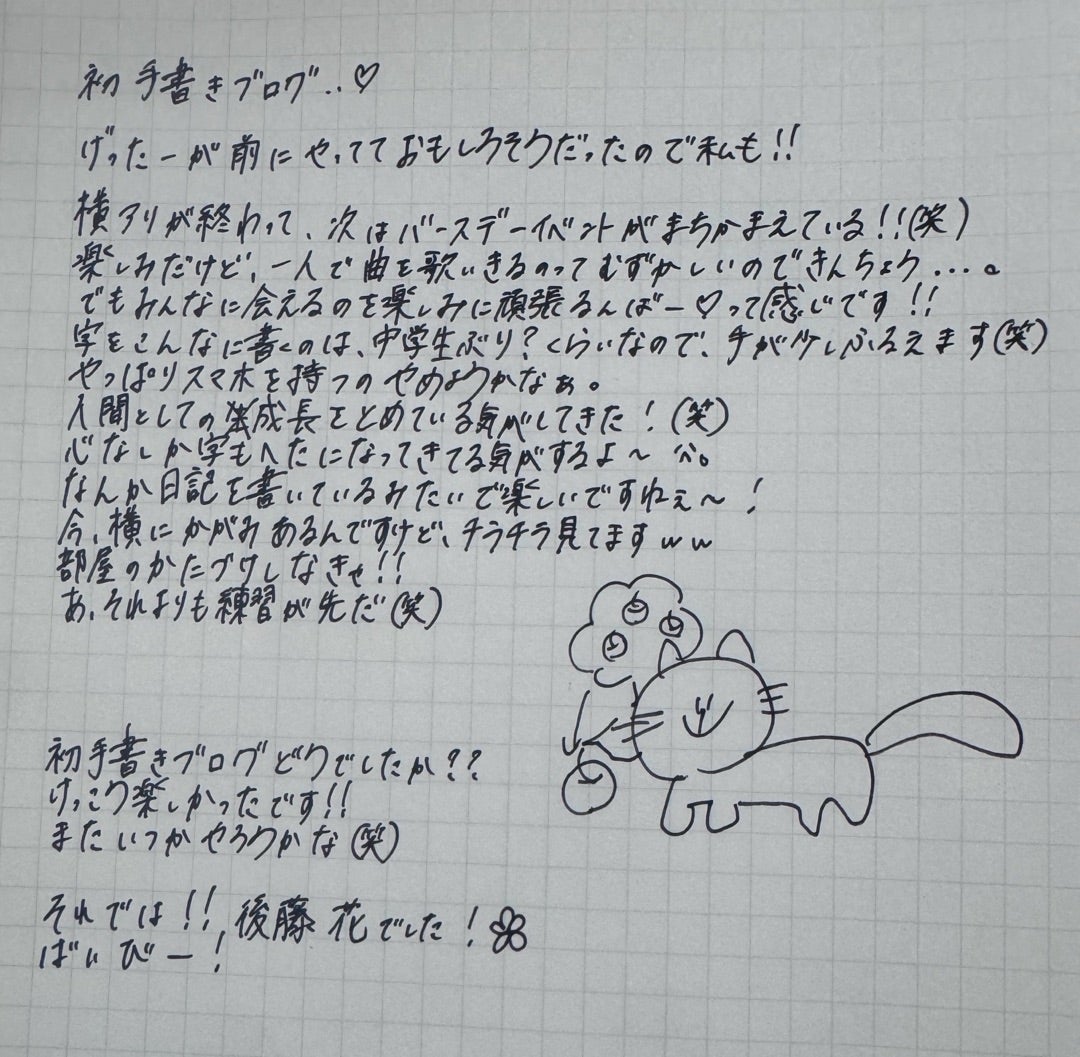 初手書きブログ..♡
げったーが前にやってておもしろそうだったので私も!!
横アリが終わって、次はバースデーイベントがまちかまえている!!(笑)
楽しみだけど、一人で曲を歌いきるのってむずかしいのできんちょう...。
でもみんなに会えるのを楽しみに頑張るんばー♡って感じです!!
字をこんなに書くのは、中学生ぶり?くらいなので、手が少しふるえます(笑)
やっぱりスマホを持つのやめようかなぁ。
人間としての成長をとめている気がしてきた!(笑)
心なしか字もへたになってきてる気がするよ〜
なんか日記を書いているみたいで楽しいですねぇ〜!
今、横にかがみあるんですけど、チラチラ見てますww
部屋のかたづけしなきゃ!!
あ、それよりも練習が先だ(笑)
初手書きブログどうでしたか??
けっこう楽しかったです!!
またいつかやろうかな(笑)
それでは!!後藤花でした!
ばいびー!